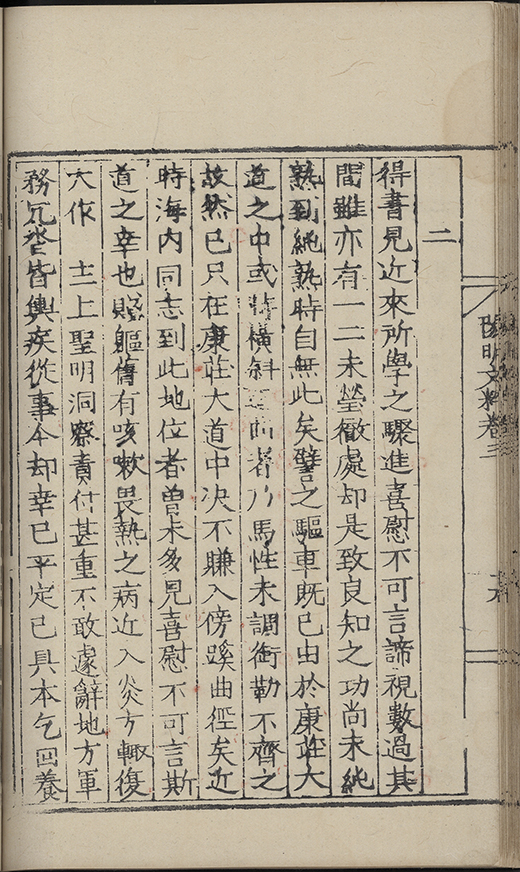 二
得書見近來所學之驟進喜慰不可言諦視數過其
間雖亦有一二未瑩徹處却是致良知之功尚未純
熟到純熟時自無此矣譬之驅車既已由於康莊大
道之中或時橫斜迂曲者乃馬性未調銜勒不齊之
故然已只在康莊大道中决不賺入傍蹊曲徑矣近
時海內同志到此地位者曾未多見喜慰不可言斯
道之幸也賤軀舊有咳嗽畏熱之病近入炎方輙復
大作 主上聖明洞察責付甚重不敢遽辭地方軍
務冗沓皆輿疾從事今却幸已平定已具本乞回養
陽明文粹卷三